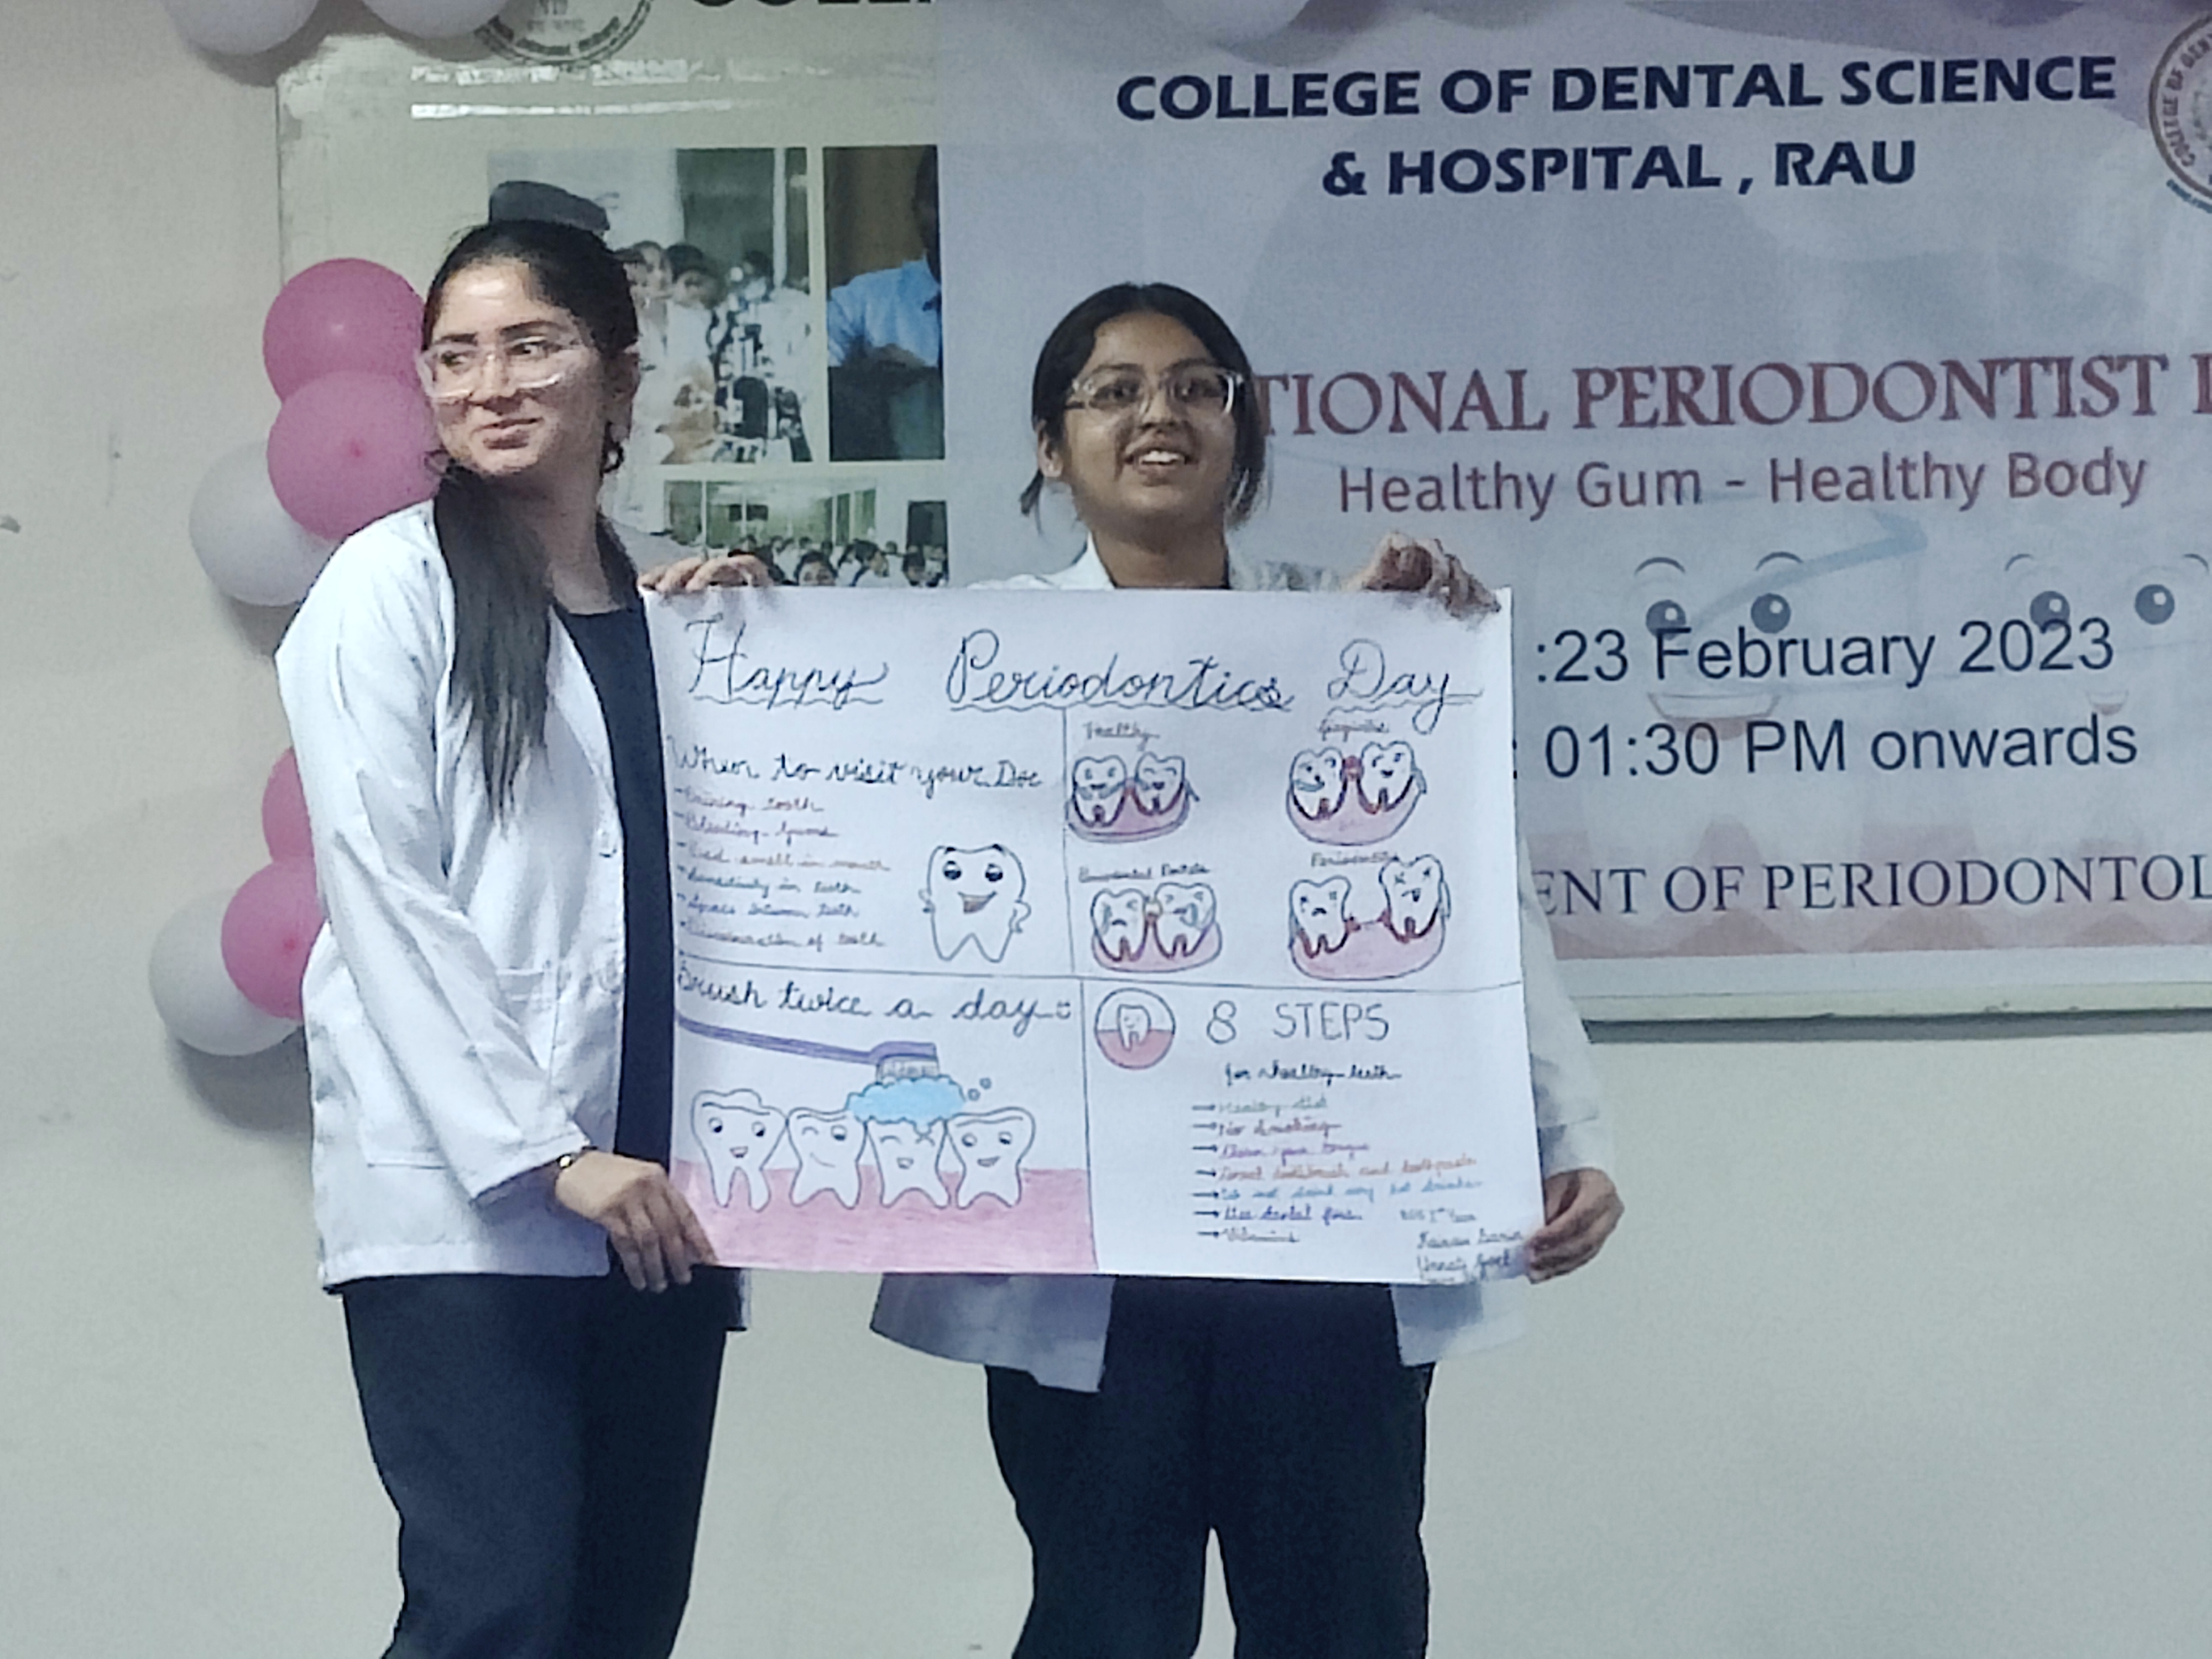 COLLEGE OF DENTAL SCIENCE
& HOSPITAL , RAU
TIONAL PERIODONTIST
Healthy Gum - Healthy Body
:23 February 2023
: 01:30 PM onwards
ENT OF PERIODONTOL
Happy Periodontics Day
When to visit your Doc
- Paining tooth
- Bleeding Gums
- Bad smell in mouth
- Sensitivity in teeth
- Spaces between teeth
- Discolouration of teeth
Healthy
Gingivitis
Periodontal Pockets
Periodontitis
Brush twice a day
8 STEPS
for healthy teeth
→ Healthy diet
→ No smoking
→ Clean your tongue
→ toothbrush and toothpaste
→ Do not drink very hot drinks
→ Use dental floss
→ Vitamins